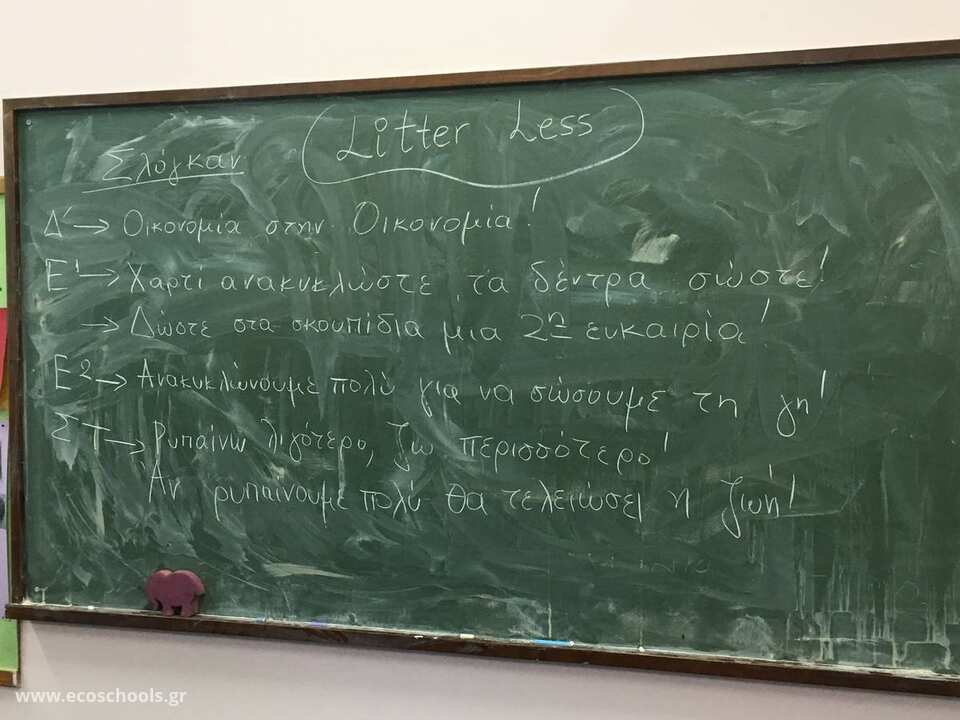 Litter Less
Σλόγκαν
Δ' → Οικονομία στην Οικονομία!
Ε1 → Χαρτί ανακυκλώστε, τα δέντρα σώστε!
→ Δώστε στα σκουπίδια μια 2η ευκαιρία!
Ε2 → Ανακυκλώνουμε πολύ για να σώσουμε τη γη!
ΣΤ → Ρυπαίνω λιγότερο, ζω περισσότερο!
Αν ρυπαίνουμε πολύ θα τελειώσει η ζωή!
www.ecoschools.gr